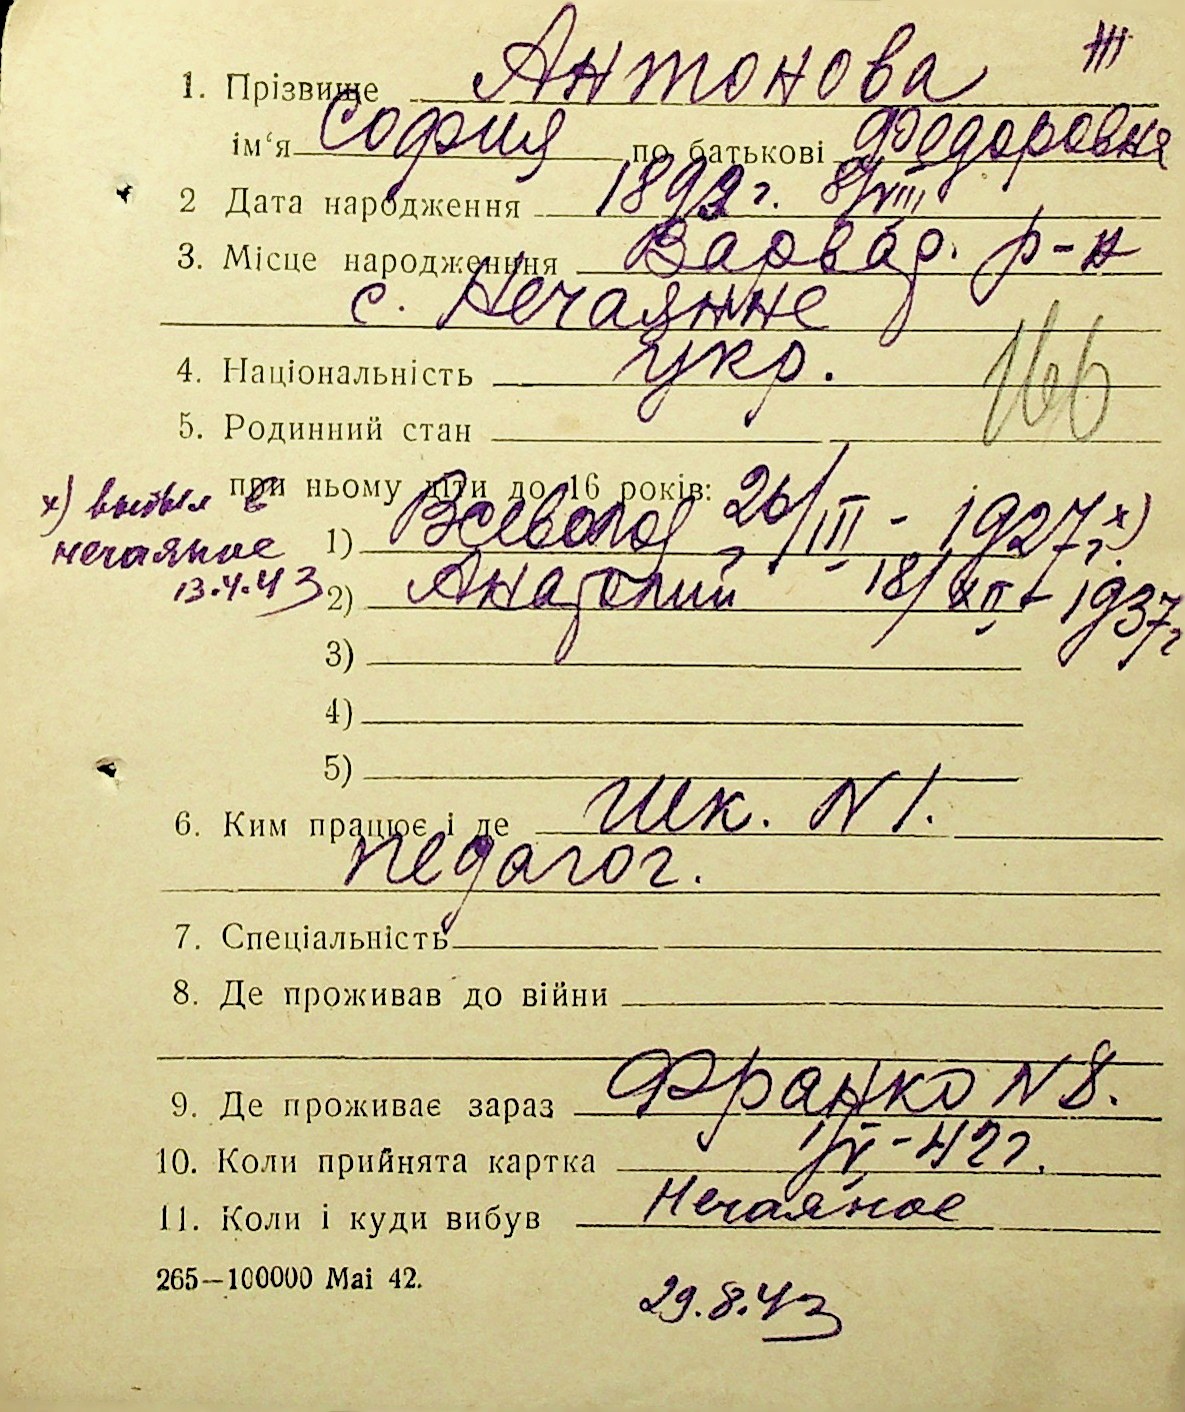 III
1. Прізвище Антонова
ім‘я София по батькові Феодоровна
2 Дата народження 1892 г. 8/VIII
3. Місце народженння Варвар. р-н
с. Нечаянне
4. Національність укр.
166
5. Родинний стан
при ньому діти до 16 років:
1) Всеволод 26/III - 1927г. х)
х) выбыл в
нечаяное
13.4.43
2) Анатолий - 18/XII - 1937г
3)
4)
5)
6. Ким працює і де Шк. N 1.
педагог.
7. Спеціальність
8. Де проживав до війни
9. Де проживає зараз Франко N 8.
10. Коли прийнята картка 1/V-42г.
11. Коли і куди вибув Нечаяное
265—100000 Mai 42.
29.8.43